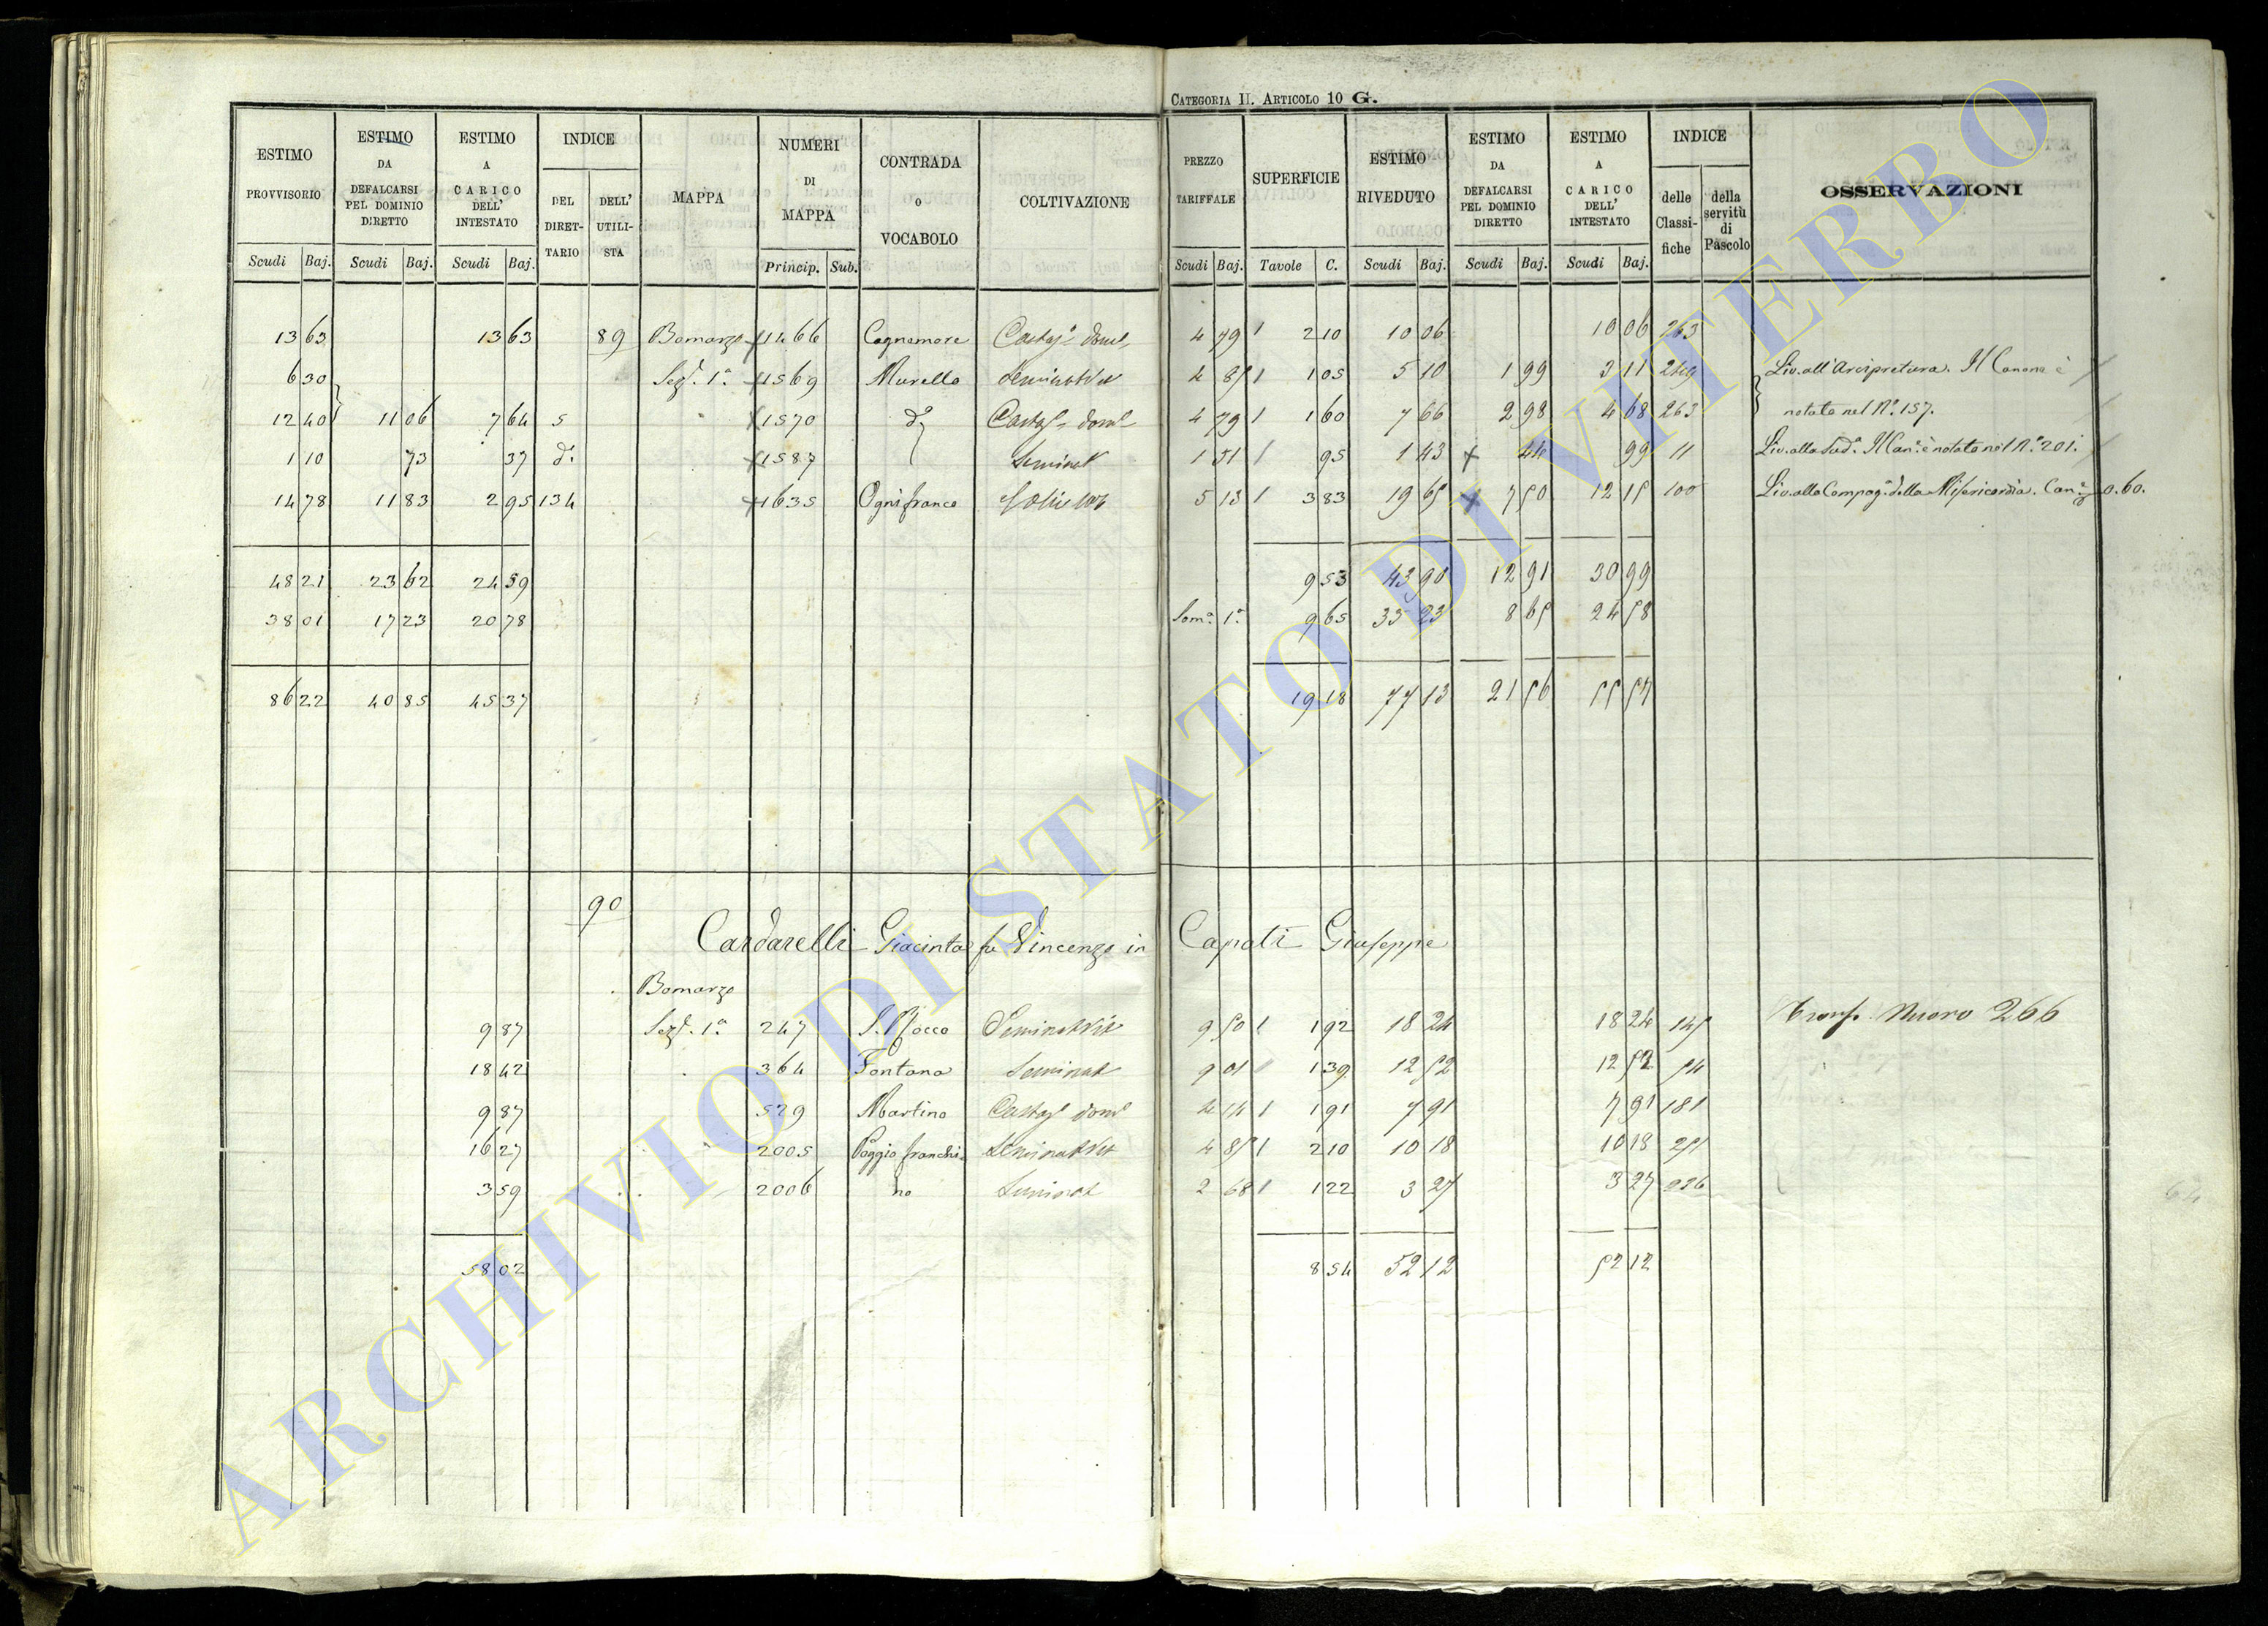 CATEGORIA II. ARTICOLO 10 G.
ESTIMO PROVVISORIO | ESTIMO DA DEFALCARSI PEL DOMINIO DIRETTO | ESTIMO A CARICO DELL' INTESTATO | INDICE | MAPPA | NUMERI DI MAPPA | CONTRADA O VOCABOLO | COLTIVAZIONE | PREZZO TARIFFALE | SUPERFICIE | ESTIMO RIVEDUTO | ESTIMO DA DEFALCARSI PEL DOMINIO DIRETTO | ESTIMO A CARICO DELL' INTESTATO | INDICE | OSSERVAZIONI
DEL DIRETTARIO | DELL' UTILISTA | delle Classifiche | della servitù di Pascolo
Scudi Baj. | Scudi Baj. | Scudi Baj. | Princip. Sub. | Scudi Baj. | Tavole C. | Scudi Baj. | Scudi Baj. | Scudi Baj.
13 63 | 13 63 | 89 | Bomarzo | 1466 | Cagnemore | Castag. dom. | 4 79 | 2 10 | 10 06 | 10 06 | 263
6 30 | Sez. 1a | 1569 | Murello | Seminat Vit | 4 85 | 1 05 | 5 10 | 1 99 | 3 11 | 249 | Liv. all'Arcipretura. Il Canone è
12 40 | 11 06 | 7 64 | 5 | 1570 | do | Castag. dom. | 4 79 | 1 60 | 7 66 | 2 98 | 4 68 | 263 | notato nel No. 157.
1 10 | 73 | 37 | do | 1587 | Seminat | 1 51 | 95 | 1 43 | 44 | 99 | 11 | Liv. alla Sud.a Il Can.e è notato nel No 201.
14 78 | 11 83 | 2 95 | 134 | 1635 | Ognifranco | 5 13 | 3 83 | 19 65 | 7 50 | 12 15 | 100 | Liv. alla Compag.a della Misericordia. Can.e 0.60.
48 21 | 23 62 | 24 59 | 9 53 | 43 90 | 12 91 | 30 99
38 01 | 17 23 | 20 78 | Som.a 1.a | 9 65 | 33 23 | 8 65 | 24 58
86 22 | 40 85 | 45 37 | 19 18 | 77 13 | 21 56 | 55 57
90
Cardarelli Giacinta fu Vincenzo in Capati Giuseppe
Bomarzo
9 87 | Sez. 1a | 247 | S. Rocco | Seminat Vit | 9 50 | 1 92 | 18 24 | 18 24 | 145 | Transp. Nuovo 266
18 42 | 364 | Fontana | Seminat | 9 01 | 1 39 | 12 52 | 12 52 | 54
9 87 | 529 | Martino | Castag. dom. | 4 14 | 1 91 | 7 91 | 7 91 | 181
16 27 | 2005 | Poggio franchi= | Seminat Vit | 4 85 | 2 10 | 10 18 | 10 18 | 251
3 59 | 2006 | no | Seminat | 2 68 | 1 22 | 3 27 | 3 27
58 02 | 8 54 | 52 12 | 52 12
64
ARCHIVIO DI STATO DI VITERBO